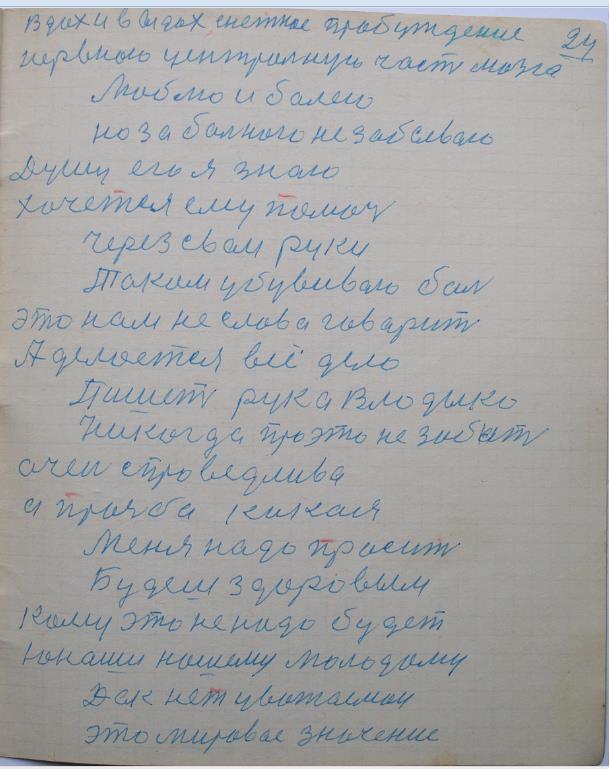 Вдох и в выдох снежное пробуждение 24
нервною централную част мозга
Люблю и болею
но за болного не забываю
Душу его я знаю
хочется ему помоч
через свои руки
Таким убуваю бол
это нам не слова говарит
А делоется всё дело
Пишет рука Влодыко
Никогда про это не забыт
очен справедлива
а прозба какая
Меня надо просит
Будеш здоровым
Кому это не надо будет
Юнаши нашему молодому
Дак нет уважаемои
это мировое значение